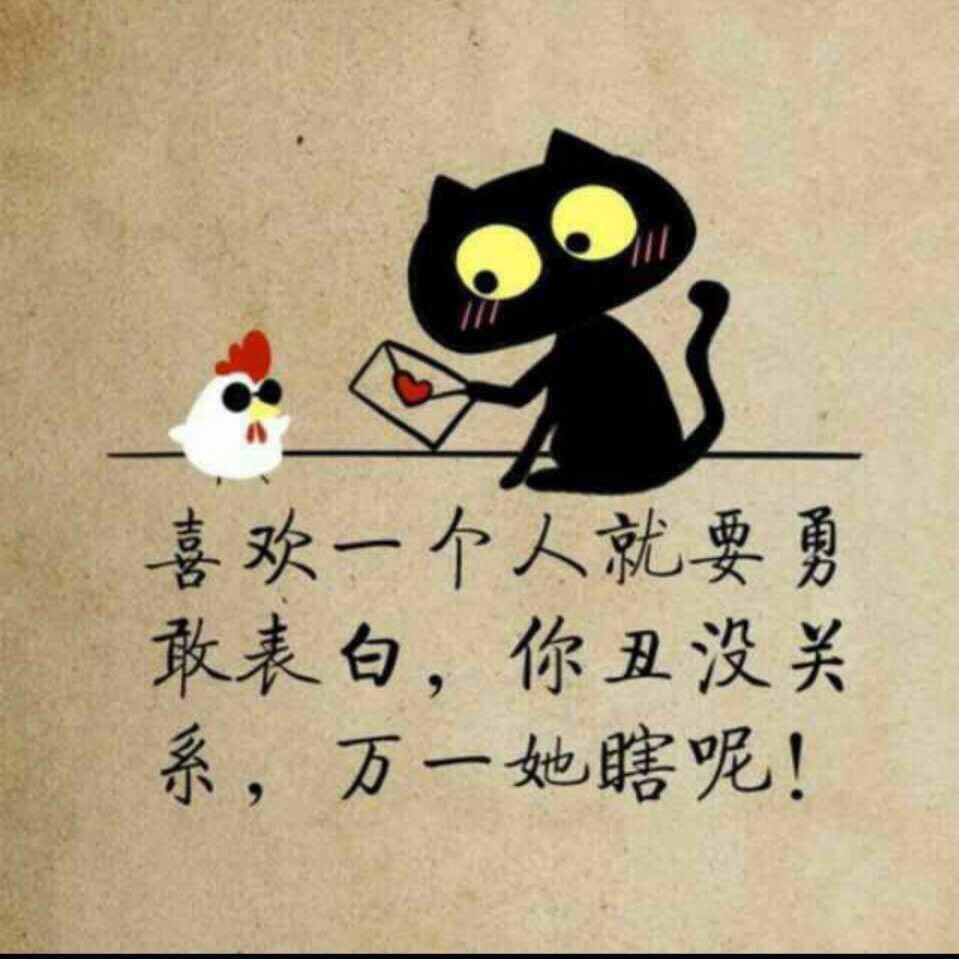 喜欢一个人就要勇
敢表白，你丑没关
系，万一她瞎呢！